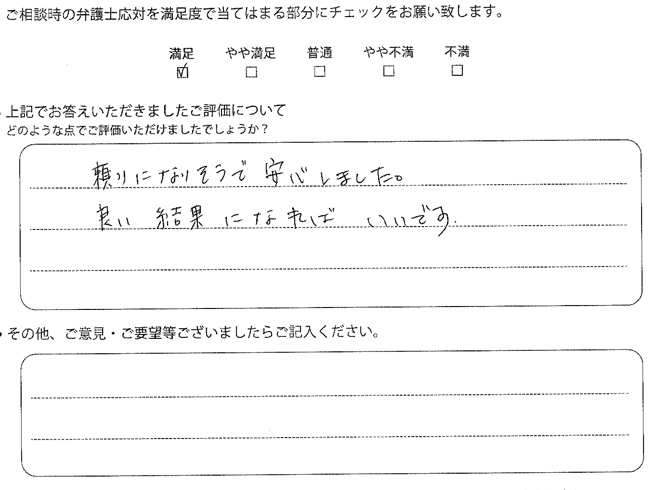 ご相談時の弁護士応対を満足度で当てはまる部分にチェックをお願い致します。
満足 やや満足 普通 やや不満 不満
☑ □ □ □ □
・上記でお答えいただきましたご評価について
どのような点でご評価いただけましたでしょうか？
頼りになりそうで安心しました。
良い結果になればいいです.
・その他、ご意見・ご要望等ございましたらご記入ください。